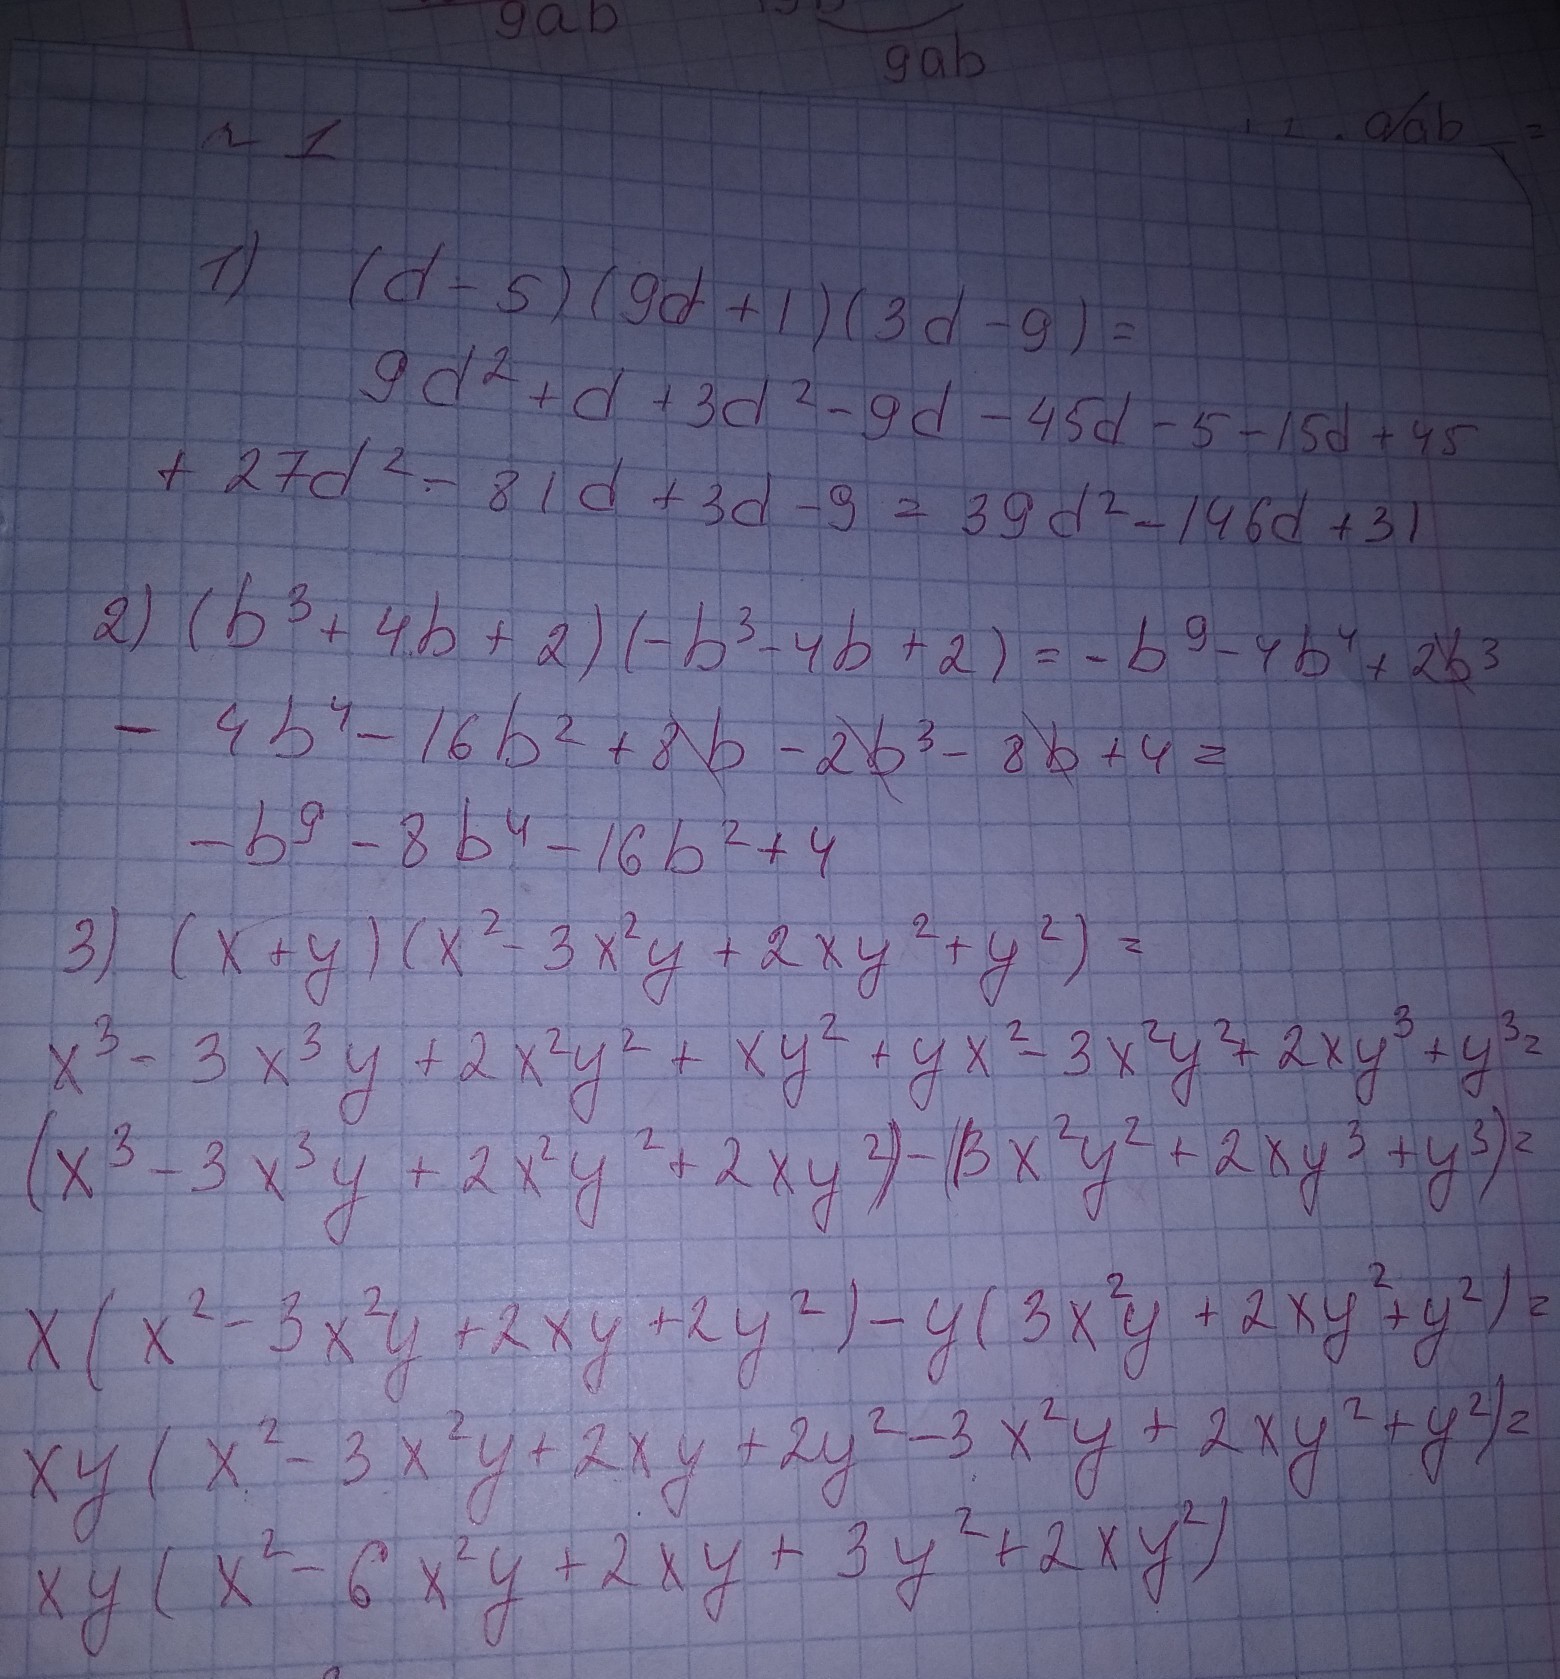 9ab
9ab
№ 1
1) (d - 5)(9d + 1)(3d - 9) =
9d² + d + 3d² - 9d - 45d - 5 - 15d + 45
+ 27d² - 81d + 3d - 9 = 39d² - 146d + 31
2) (b³ + 4b + 2)(-b³ - 4b + 2) = -b⁹ - 4b⁴ + 2b³
- 4b⁴ - 16b² + 8b - 2b³ - 8b + 4 =
-b⁹ - 8b⁴ - 16b² + 4
3) (x + y)(x² - 3x²y + 2xy² + y²) =
x³ - 3x³y + 2x²y² + xy² + yx² - 3x²y² + 2xy³ + y³ =
(x³ - 3x³y + 2x²y² + 2xy²) - (3x²y² + 2xy³ + y³) =
x(x² - 3x²y + 2xy + 2y²) - y(3x²y + 2xy² + y²) =
xy(x² - 3x²y + 2xy + 2y² - 3x²y + 2xy² + y²) =
xy(x² - 6x²y + 2xy + 3y² + 2xy²)